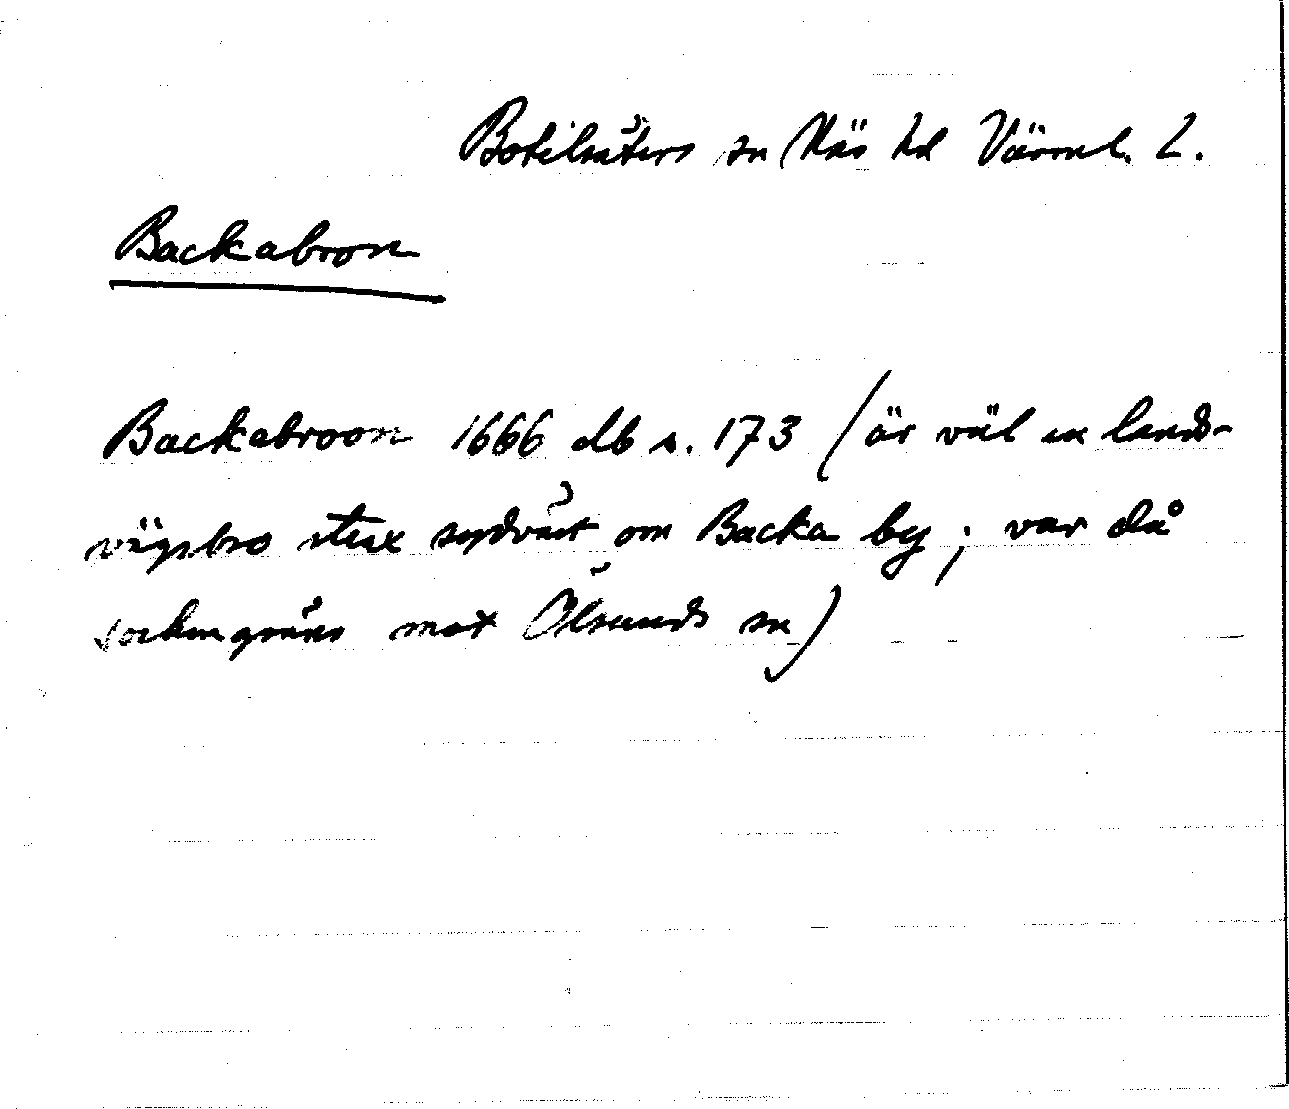 Botilsäters sn Näs hd Värml. L.
Backabron
Backabroon 1666 db s. 173 (är väl en lands-
vägsbro strax sydväst om Backa by; var då
sockengräns mot Ölsunds sn)